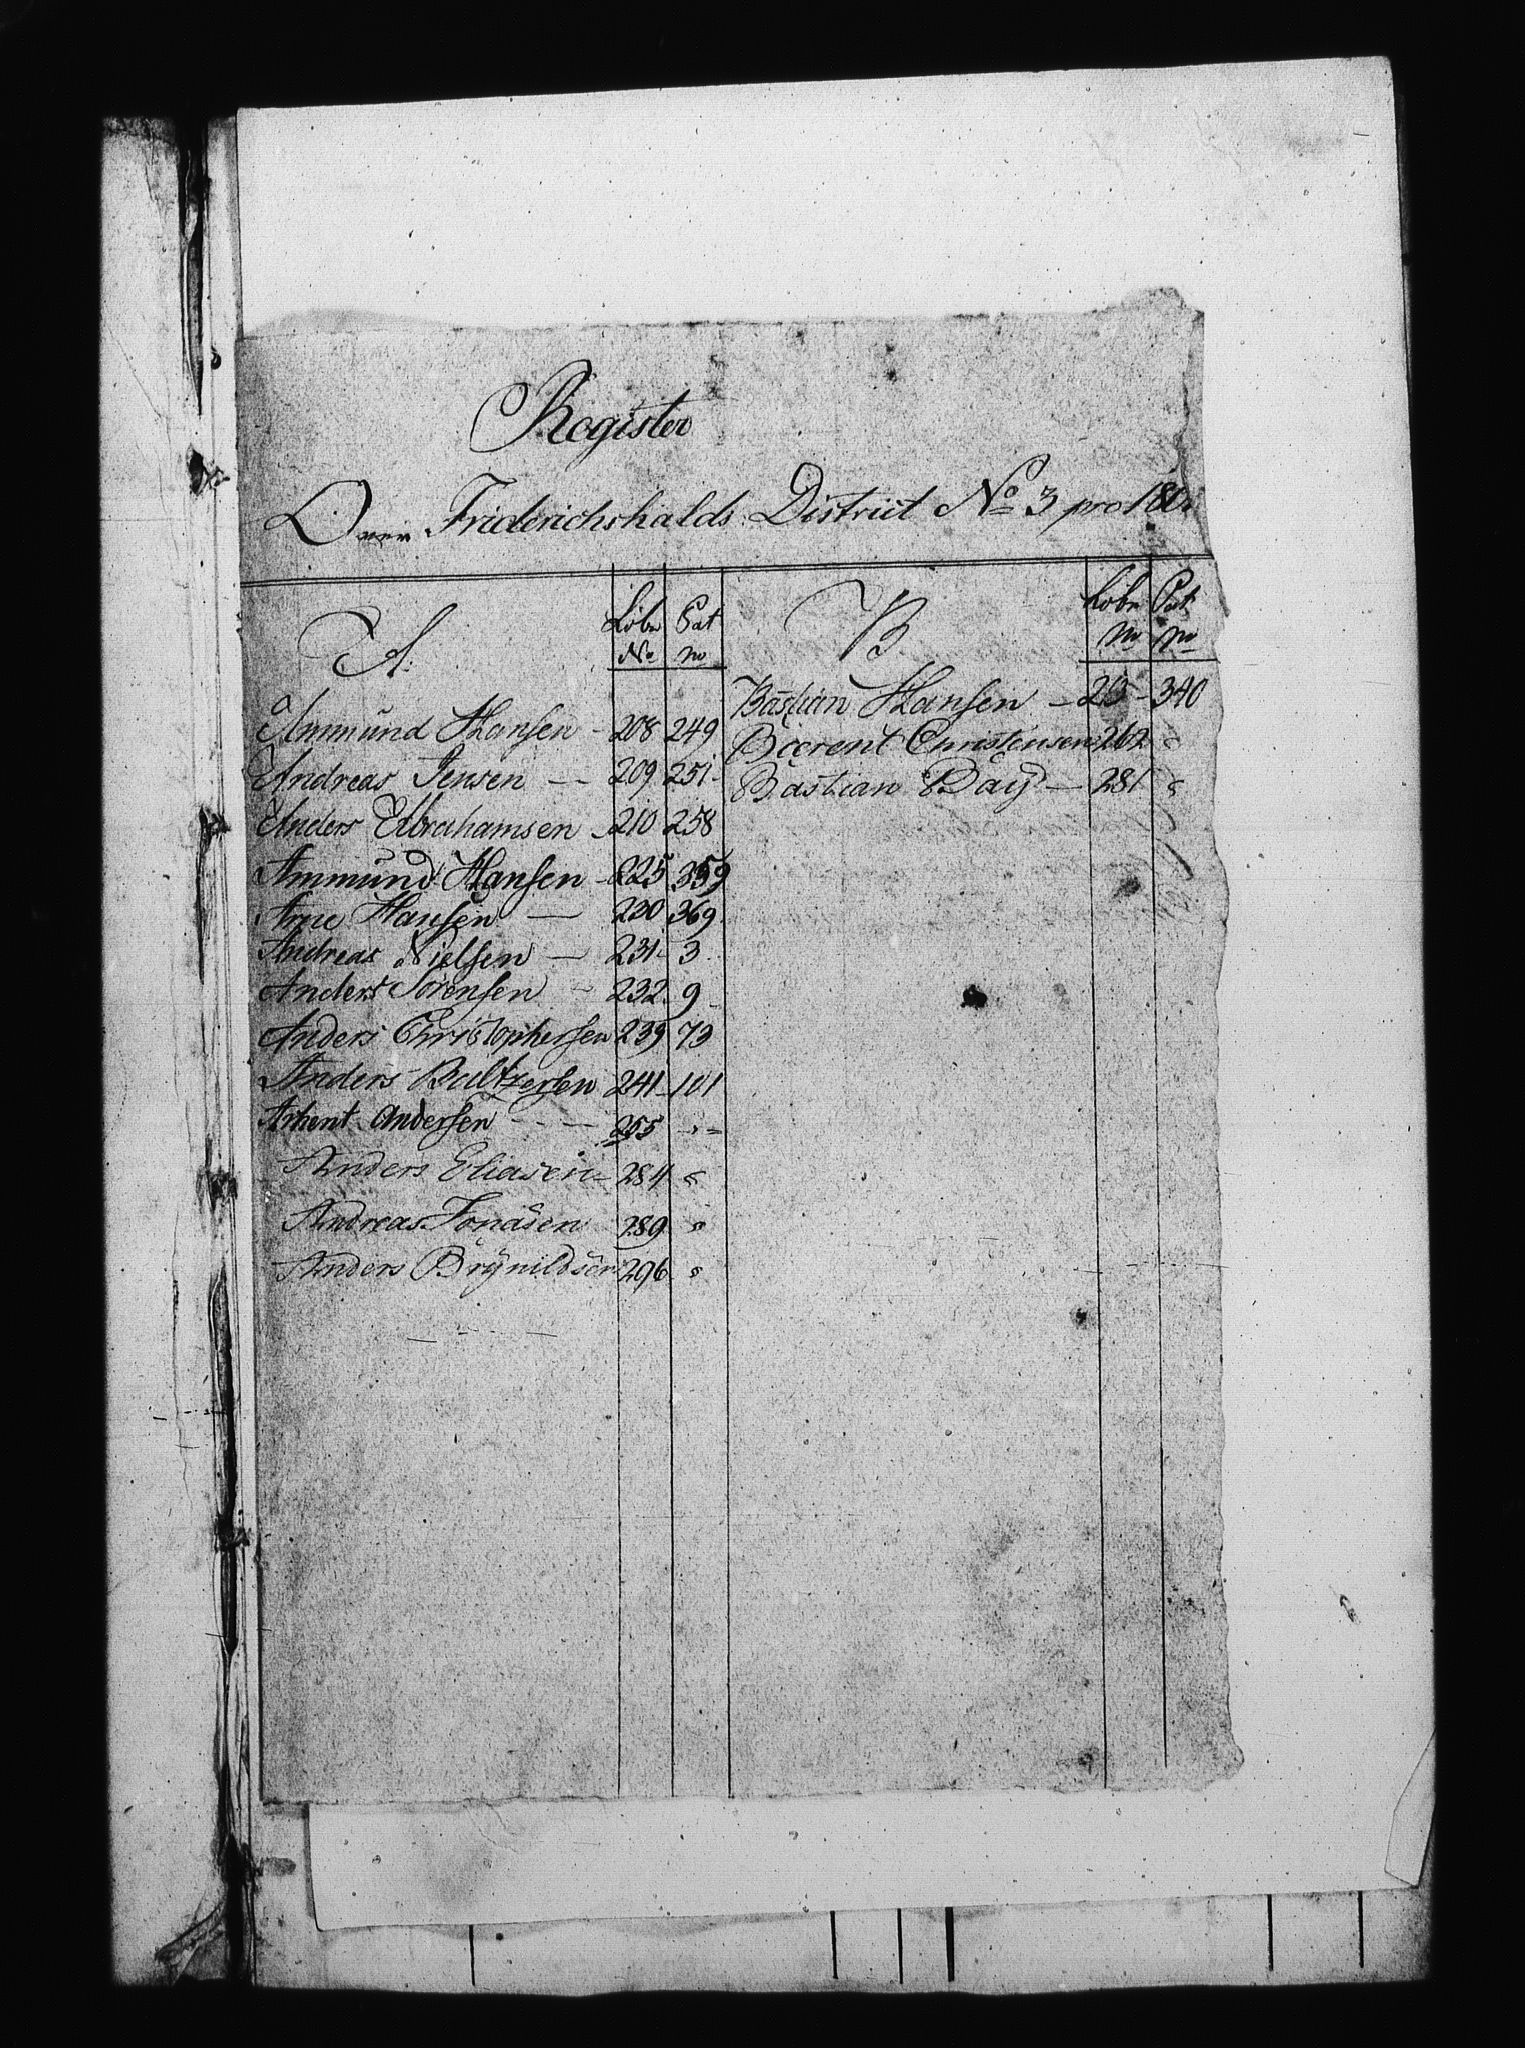 Register
Over Friderichshalds District No 3 pro 180
A: Löbe No Pat no
Ammund Hansen - 208 249
Andreas Jensen - - 209 251 -
Anders Abrahamsen - 210 258
Ammund Hansen - 225 359
Arne Hansen - 230 369
Andreas Nielsen - 231 - 3
Anders Sörensen - 232 - 9 -
Anders Christophersen 239 73
Anders Baltzersen 241 - 101
Andersen - - - 255 - " -
Anders Eliasen - 284 "
Andreas Jonasen 289 "
Anders Brÿnildsen 296 "
B. Löbe no Pat no
Bastian Hansen - 215 - 340
Beerent Christensen 262 "
Bastian Bay - 281 "